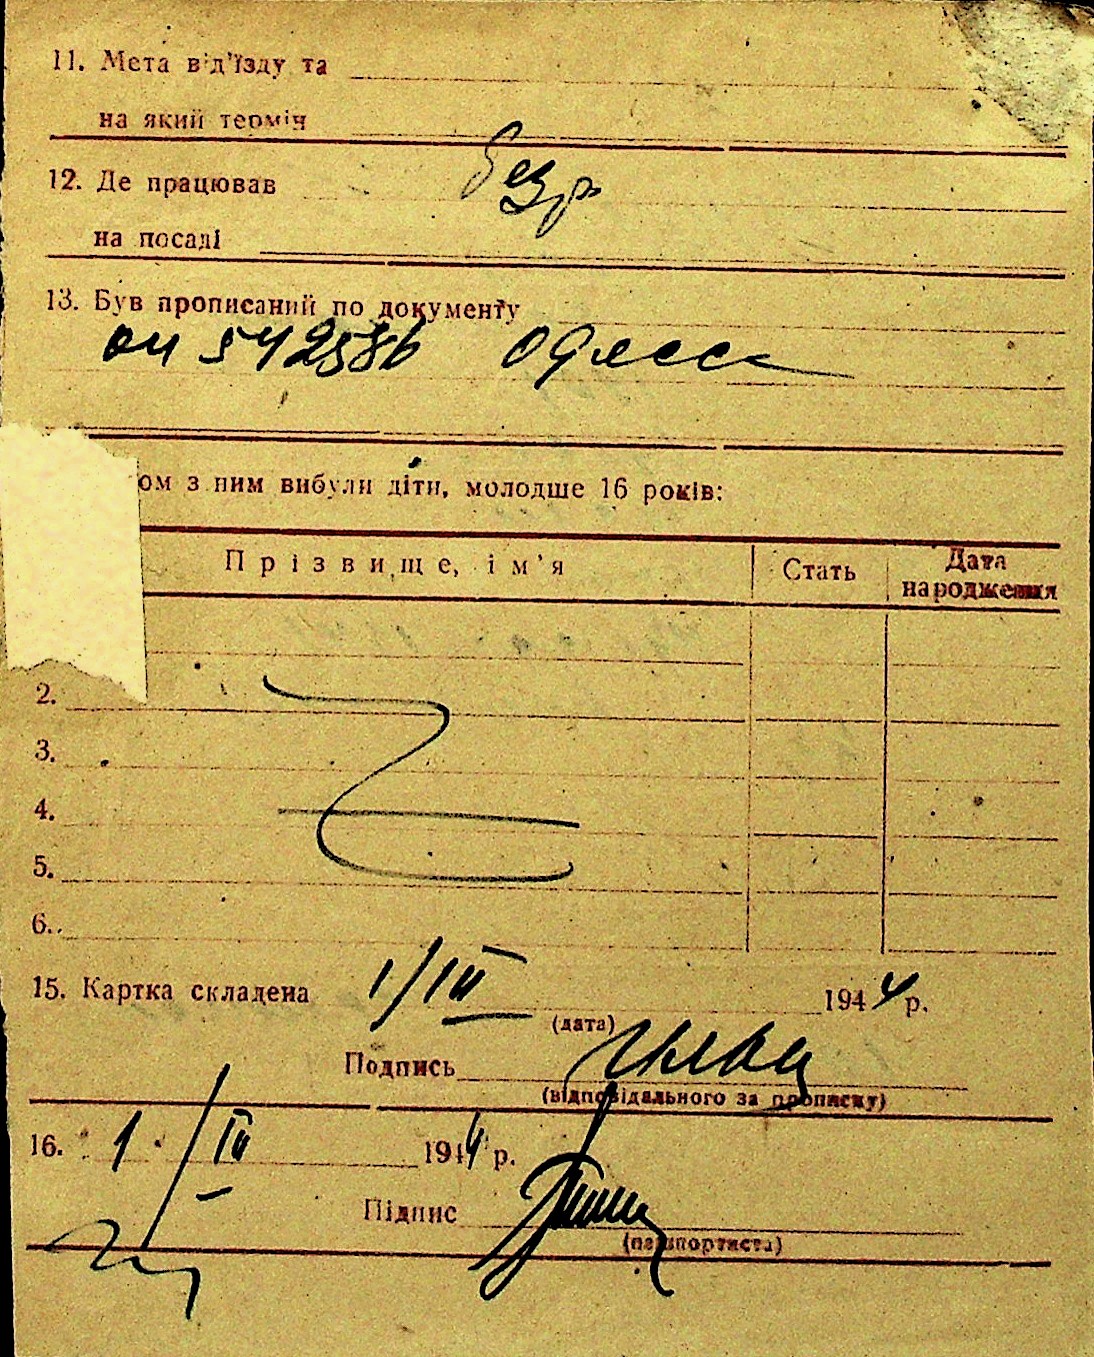 11. Мета від'їзду та
на який термін
12. Де працював безр
на посаді
13. Був прописаний по документу
542586 Одесса
ом з ним вибули діти, молодше 16 років:
Прізвище, ім'я Стать Дата народження
2.
3.
4.
5.
6.
15. Картка складена 1/III 1944 р.
(дата)
Подпись
(відповідального за прописку)
16. 1 / III 1944 р.
Підпис
(паспортиста)